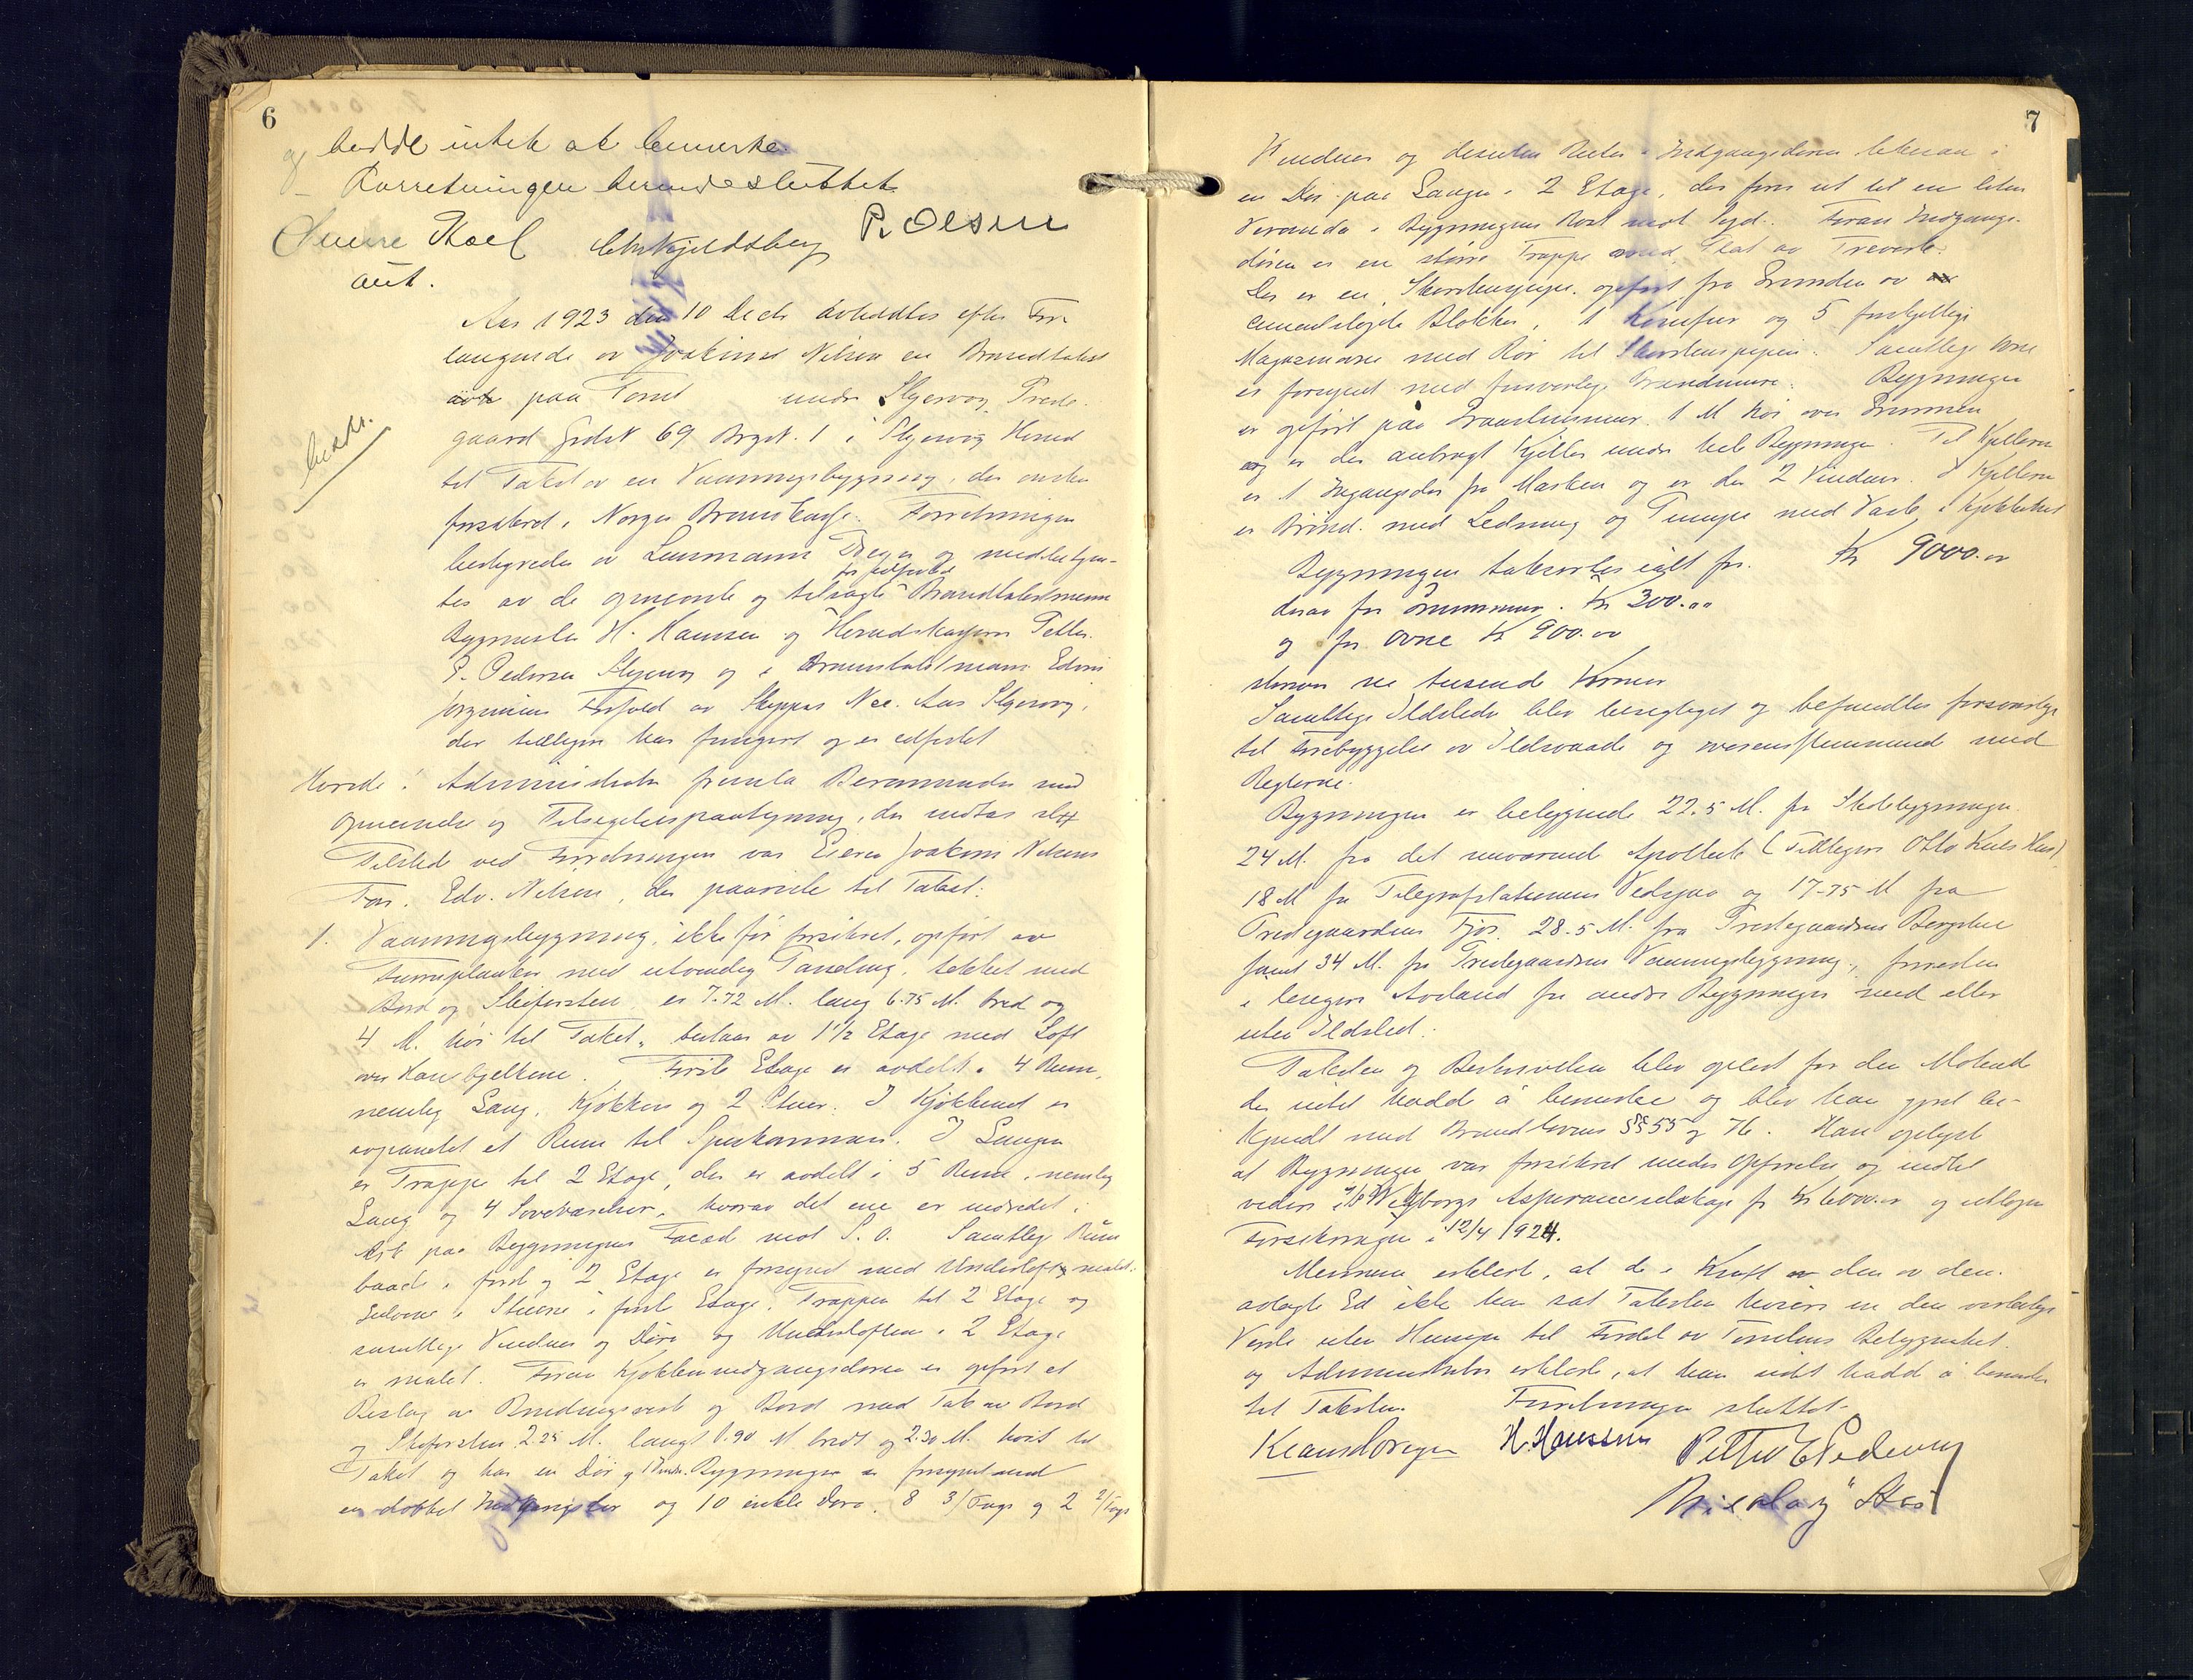 6
og hadde intet at bemerke.
Forretningen dermed sluttet
P. Olsen
aut.
Aar 1923 den 10 Decb avholdtes efter For
langende av Joakim Nilsen en Brandtakst
paa Tomt under Skjervøy Preste-
gaard Grdsn 69 Brgsn. 1 i Skjervøy Herred
til Takst av en Vaaningsbygning, der ønskes
forsikret i Norges Brandkasse. Forretningen
bestyredes av Lensmann og medbetjen-
tes av de opnævnte og tilsagte Brandtakstmenn
Bygmester H. Hansen og Herredskasserer Petter
E. Pedersen Skjervøy og i Brandtakstmann Edvin
Jørgensens Forfald av Skipper Nic. Aas Skjervøy,
der tidligere har fungert og er edfæstet
Administrator fremla Berammelse med
Opnævnelse og Tilsigelsespaategning, der indtas
Tilsted ved Forretningen var Eieren Joakim Nilsens
Far, Edv. Nilsen, der paaviste til Takst:
1. Vaaningsbygning, ikke før forsikret, opført av
Furruplanker med utvendig Paneling, tækket med
Bord og Skifersten er 7.72 M. lang 6.75 M. bred og
4 M. høi til Taket, bestaar av 1 1/2 Etage med Loft
over Hanebjelkene. Første Etage er avdelt i 4 Rum,
nemlig Gang, Kjøkken og 2 Stuer. I Kjøkkenet er
avpanelet et Rum til Spiskammer. I Gangen
er Trappe til 2 Etage, der er avdelt i 5 Rum, nemlig
Gang og 4 Soveværelser, hvorav det ene er indredet i
Ark paa Bygningens Facad mot S.O. Samtlige Rum
baade i først og 2 Etage er forsynet med Underloft, malet.
Gulvene i Stuene i først Etage, Trappen til 2 Etage og
samtlige Vinduer og Døre og Underloften i 2 Etage
er malet. Foran Kjøkkenindgangsdøren er opført et
Bislag av Bindingsverk og Bord med Tak av Bord
og Skifersten 2.25 M. langt 1.90 M bredt og 2.30 M. høit til
Taket og har en Dør og 1 Vindu. Bygningen er forsynet med
en dobbel Indgangsdør og 10 enkle Døre, 8 3/Fags og 2 2/Fags
7
Vinduer og desuten Ruter i Indgangsdøren
en Dør paa Gangen i 2 Etage, der fører ut til en liten
Veranda i Bygningens Rost mot Syd. Foran Indgangs-
døren er en større Trappe med Plat av Treverk.
Der er en Skorstenspipe opført fra Grunden av
cementstøpte Blokker, 1 Komfur og 5 forskjellige
Magasinovne med Rør til Skorstenspipen. Samtlige Ovne
er forsynet med forsvarlige Brandmure. Bygningen
er opført paa Graastensmur 1 M høi over Grunnen
og er der anbragt Kjeller under hele Bygningen. Til Kjelleren
er 1 Ingangsdør fra Marken og er der 2 Vinduer. I Kjelleren
er Brønd med Ledning og Pumpe med Vask i Kjøkkenet
Bygningen takseres ialt for Kr 9000.00
derav for Grunnmur Kr 300.00
og for Ovne Kr 900.00
skriver ni tusende Kroner
Samtlige Ildsteder blev besigtiget og befundtes forsvarlige
til Forebyggelse av Ildsvaade og overensstemmende med
Reglerne.
Bygningen er beliggende 22.5 M. fra
24 M. fra det nuværende Apothek (Tidligere Otto Hus)
18 M fra Telegrafstationens Vedsjaa og 17.75 M fra
Prestegaardens Fjøs, 28.5 M. fra Prestegaardens
samt 34 M. fra Prestegaardens Vaaningsbygning, forresten
i længere Avstand fra andre Bygninger med eller
uten Ildsted.
Taksten og Beskrivelsen blev oplæst for den Møtende
der intet hadde å bemerke og blev han gjort be-
kjendt med Brandlovens §§ 55 og 76. Han oplyste
at Bygningen var forsikret under Opførelse og indtil
videre i Assuranceselskap for Kr 6000.00 og utløper
Forsikringen i 12/4 1924.
Mennene erklærte, at de i Kraft av den av dem
avlagte Ed ikke har sat Taksten høiere en den virkelige
Verdi uten Hensyn til Fordel av Tomtens Beliggenhet
og Administrator erklærte, at han intet hadde å bemerke
til Taksten. Forretningen sluttet.
H. Hansen Petter E Pedersen
Nicolay Aas